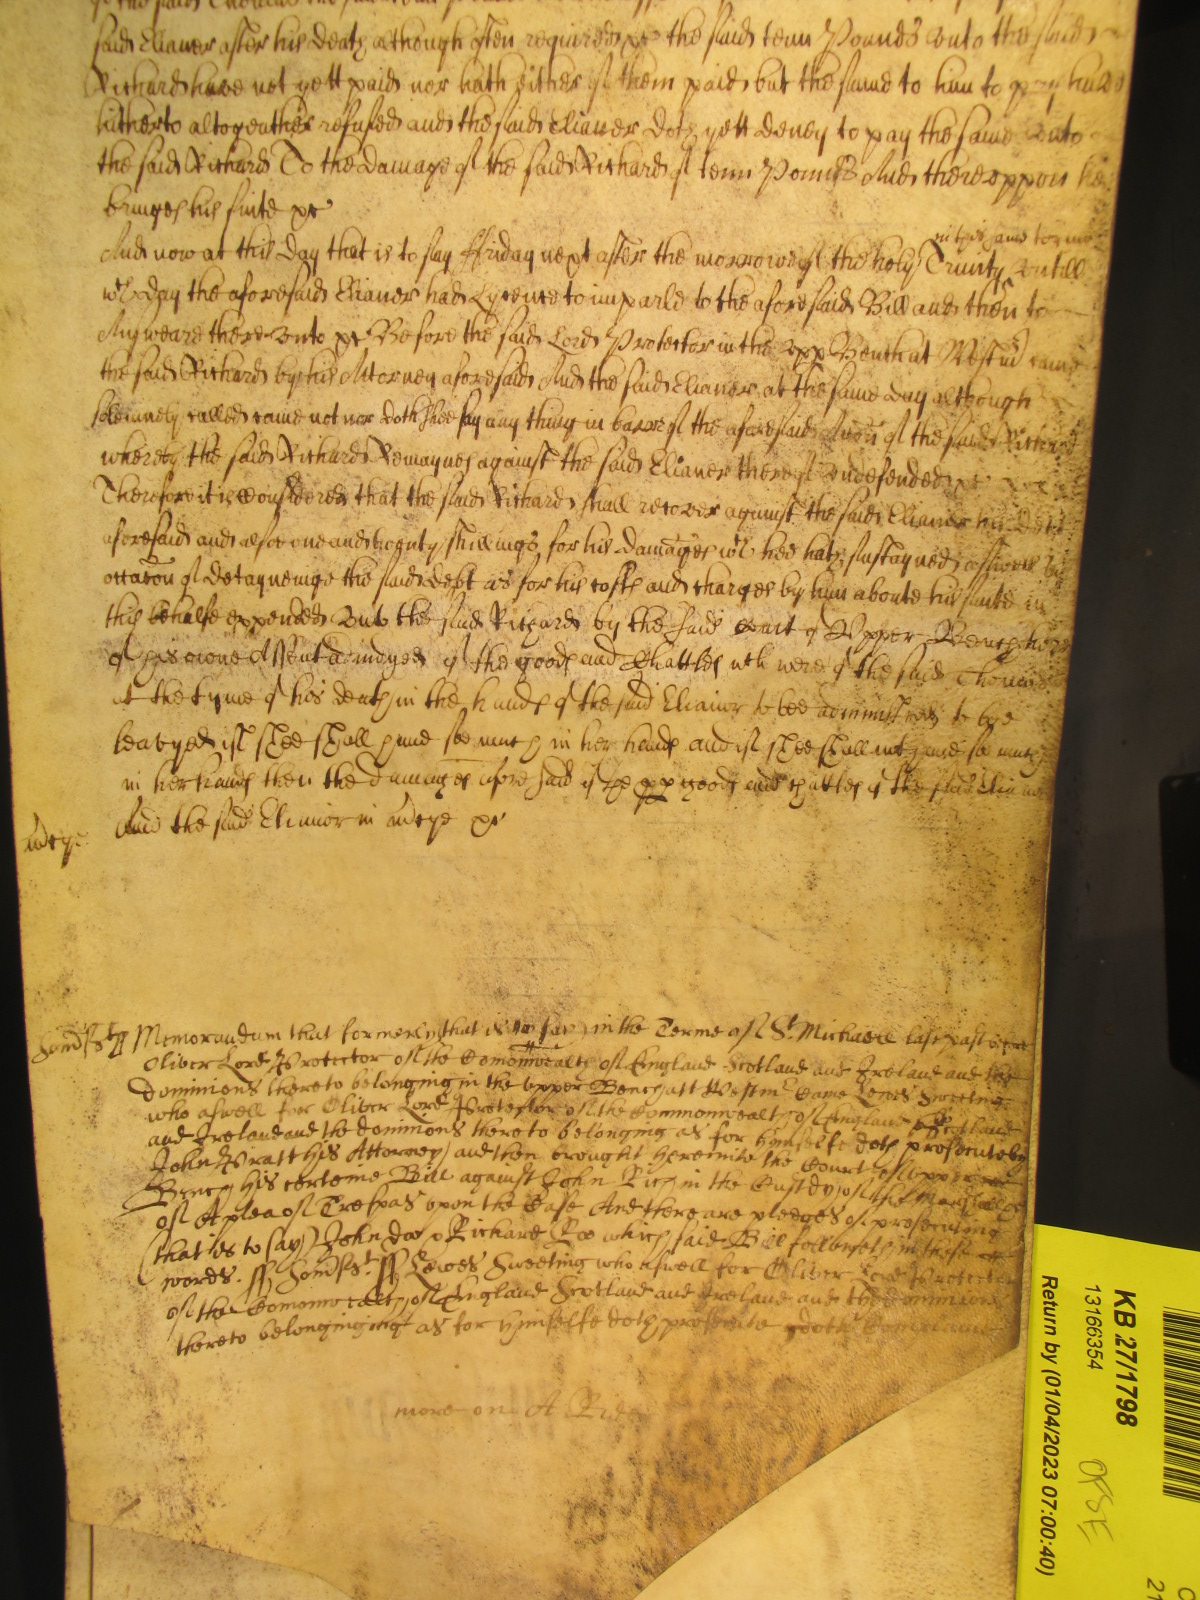 said Elianer after his death although often required &c the said tenn Pounds unto the said
Richard have not yett paid nor hath either of them paid but the same to him to pay have
hitherto altogeather refused and the said Elianer doth yett deney to pay the same unto
the said Richard To the damage of the said Richard of tenn Pounds And thereuppon he
bringes his suite &c
in this same terme
And now at this day that is to say ffriday next after the morrow of the holy Trinity untill
wch day the aforesaid Elianer had Lycence to imparle to the aforesaid Bill and then to
Answeare there unto &c Before the said Lord Protector in the upp Bench at Westmr came
the said Richard by his Attorney aforesaid And the said Elianer at the same day although
solemnely called came not nor doth shee say any thing in barr of the aforesaid Accon of the said Richard
whereby the said Richard Remaynes against the said Elianer thereof undefended &c
Therefore it is considered that the said Richard shall recover against the said Elianer his debt
aforesaid and alsoe one and twenty shillings for his damages wch hee hath sustayned aswell by
occacon of detayneinge the said debt as for his costs and charges by him aboute his suite in
this behalfe expended unto the said Richard by the said Court of Upper Bench here
of his owne Assent adiudged of the goods and Chattles wch were of the said Thomas
at the tyme of his death in the hands of the said Elianor to bee administred to bee
leavyed if shee shall have soe much in her hands and if shee shall not have soe much
in her hands then the damages aforesaid of the pp goods and chattles of the said Elianor
And the said Elianor in mercy &c
mercy
Somst ss Memorandum that formerly that is to say in the Terme of St Michaell last past before
Oliver Lord Protector of the Comonwealth of England Scotland and Ireland and the
Dominions thereto belonging in the upper Bench att Westmr Came Lewes Sweeting
who aswell for Oliver Lord Protector of the Commonwealth of England Scotland
and Ireland and the dominions thereto belonging as for himselfe doth prosecute by
John Pratt His Attorney and then brought here into the Court of upper
Bench His certeine Bill against John Rich in the Custdy of the Marshall &c
of A plea of Trespas upon the Case And there are pledges of prosecuting
(that is to say) John doo & Richard Roo which said Bill followeth in these
words. ss Somst. ss Lewes Sweeting who aswell for Oliver Lord Protector
of the Comonwealth of England Scotland and Ireland and the dominions
thereto belonginging as for himselfe doth prosecute
more on A Rider
KB 27/1798
13166354
Return by (01/04/2023 07:00:40)